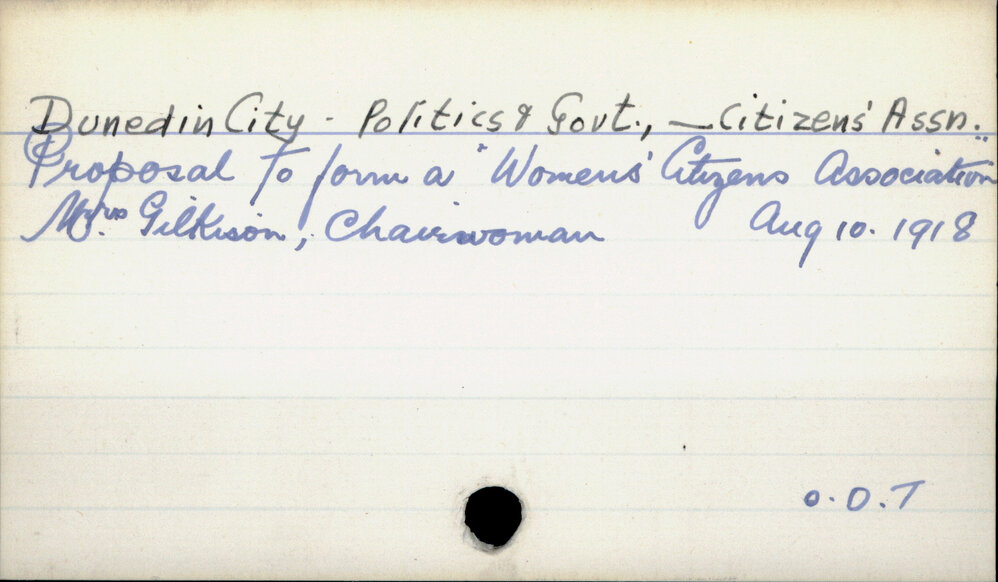 Dunedin City - Politics & Govt., — Citizens' Assn.
Proposal to form a "Women's Citizens Association"
Mrs. Gilkison, Chairwoman Aug 10. 1918
O.D.T